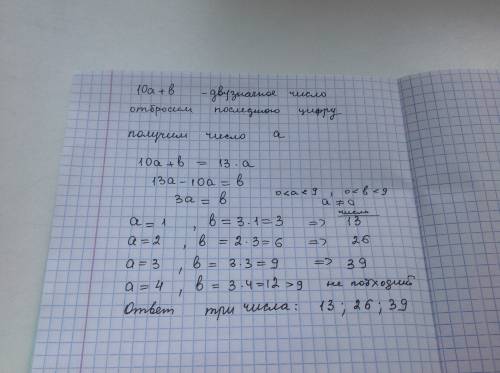 10а+в - двузначное число
отбросим последнюю цифру
получим число а
10а+в = 13·а
13а-10а=в
3а = в
0<а<9, 0<в<9
а ≠ 0
числа
а=1, в=3·1=3 => 13
а=2, в = 2·3=6 => 26
а=3, в = 3·3=9 => 39
а=4, в = 3·4=12>9 не подходит
Ответ три числа: 13; 26; 39